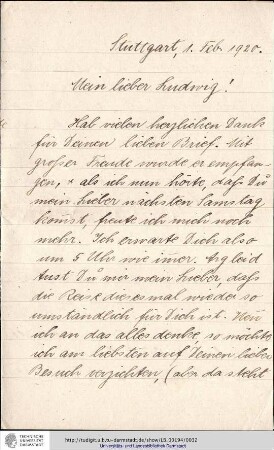 Stuttgart, 1. Feb. 1920.
Mein lieber Ludwig!
Hab vielen herzlichen Dank
für Deinen lieben Brief. Mit
großer Freude wurde er empfan-
gen, + als ich nun hörte, daß Du
mein Lieber nächsten Samstag
komst, freute ich mich noch
mehr. Ich erwarte Dich also
um 5 Uhr wie imer. Arg leid
tust Du mir mein Lieber, daß
die Reise diesmal wieder so
umständlich für Dich ist. Wen
ich an das alles denke, so möchte
ich am liebsten auf Deinen lieben
Besuch verzichten, (aber da steht
TECHNISCHE
UNIVERSITÄT
DARMSTADT
http://tudigit.ulb.tu-darmstadt.de/show/LB_03194/0002
Universitäts- und Landesbibliothek Darmstadt